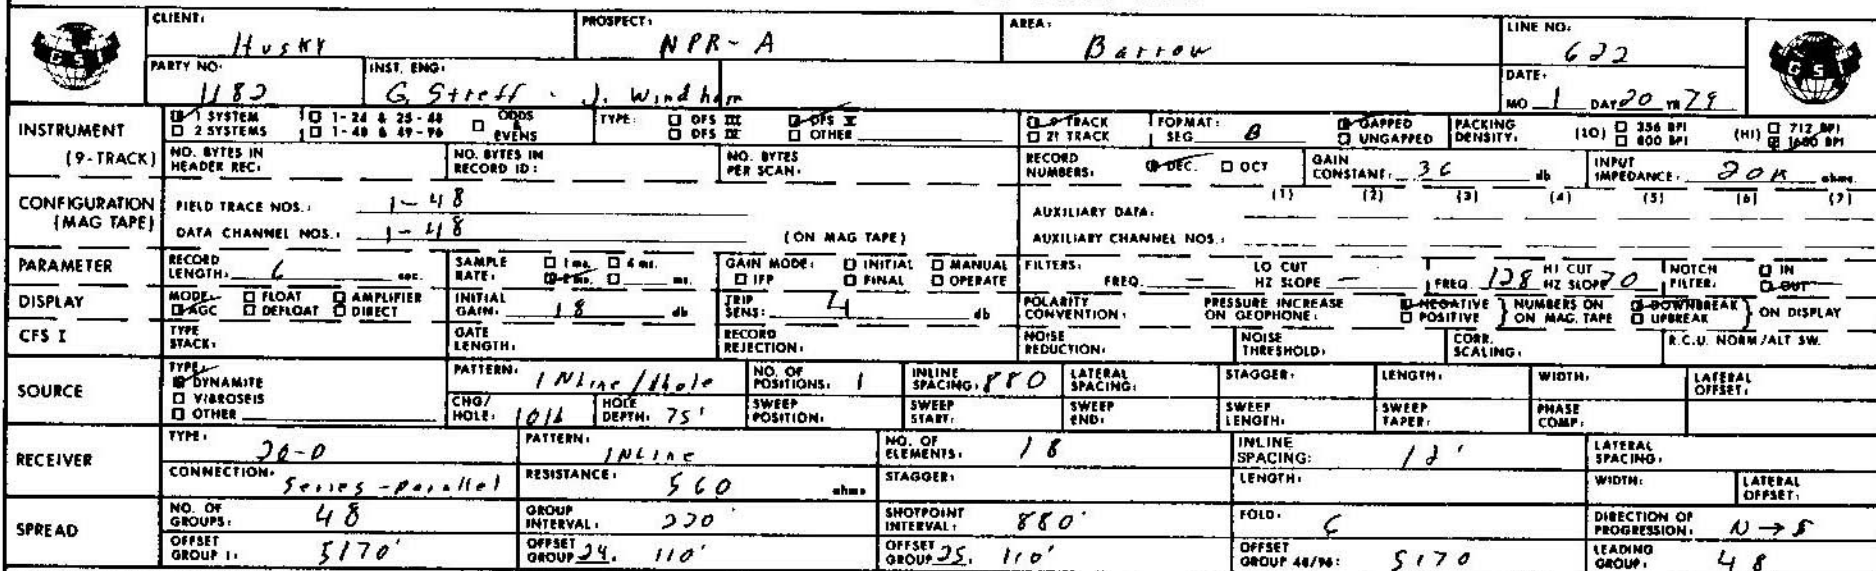 CLIENT: Husky PROSPECT: NPR-A AREA: Barrow LINE NO: 622
GSI
PARTY NO: 1182 INST. ENG: G. Streff - J. Windham DATE: MO 1 DAY 20 YR 79
GSI
INSTRUMENT (9-TRACK)
1 SYSTEM 1-24 & 25-48 ODDS & EVENS TYPE: DFS III DFS V 9 TRACK FORMAT: SEG B GAPPED PACKING DENSITY: (LO) 356 BPI (HI) 712 BPI
2 SYSTEMS 1-48 & 49-96 DFS IV OTHER 21 TRACK UNGAPPED 800 BPI 1600 BPI
NO. BYTES IN HEADER REC: NO. BYTES IN RECORD ID: NO. BYTES PER SCAN: RECORD NUMBERS: DEC. OCT GAIN CONSTANT: 36 db INPUT IMPEDANCE: 20K ohms.
CONFIGURATION (MAG TAPE)
(1) (2) (3) (4) (5) (6) (7)
FIELD TRACE NOS.: 1-48 AUXILIARY DATA:
DATA CHANNEL NOS.: 1-48 (ON MAG TAPE) AUXILIARY CHANNEL NOS.:
PARAMETER RECORD LENGTH: 6 sec. SAMPLE RATE: 1 ms. 4 ms. 2 ms. ms. GAIN MODE: INITIAL MANUAL IFP FINAL OPERATE FILTERS: FREQ. — LO CUT HZ SLOPE — FREQ. 128 HI CUT HZ SLOPE 70 NOTCH FILTER: IN OUT
DISPLAY MODE: FLOAT AMPLIFIER AGC DEFLOAT DIRECT INITIAL GAIN: 18 db TRIP SENS: 4 db POLARITY CONVENTION: PRESSURE INCREASE ON GEOPHONE: NEGATIVE POSITIVE } NUMBERS ON MAG. TAPE DOWNBREAK UPBREAK } ON DISPLAY
CFS I TYPE STACK: GATE LENGTH: RECORD REJECTION: NOISE REDUCTION: NOISE THRESHOLD: CORR. SCALING: R.C.U. NORM/ALT SW.
SOURCE TYPE: DYNAMITE VIBROSEIS OTHER
PATTERN: INLine/1hole NO. OF POSITIONS: 1 INLINE SPACING: 880 LATERAL SPACING: STAGGER: LENGTH: WIDTH: LATERAL OFFSET:
CHG/HOLE: 10lb HOLE DEPTH: 75' SWEEP POSITION: SWEEP START: SWEEP END: SWEEP LENGTH: SWEEP TAPER: PHASE COMP:
RECEIVER TYPE: 20-D PATTERN: INLine NO. OF ELEMENTS: 18 INLINE SPACING: 12' LATERAL SPACING:
CONNECTION: Series-parallel RESISTANCE: 560 ohms STAGGER: LENGTH: WIDTH: LATERAL OFFSET:
SPREAD NO. OF GROUPS: 48 GROUP INTERVAL: 220' SHOTPOINT INTERVAL: 880' FOLD: 6 DIRECTION OF PROGRESSION: N → S
OFFSET GROUP 1: 5170' OFFSET GROUP 24: 110' OFFSET GROUP 25: 110' OFFSET GROUP 48/96: 5170 LEADING GROUP: 48